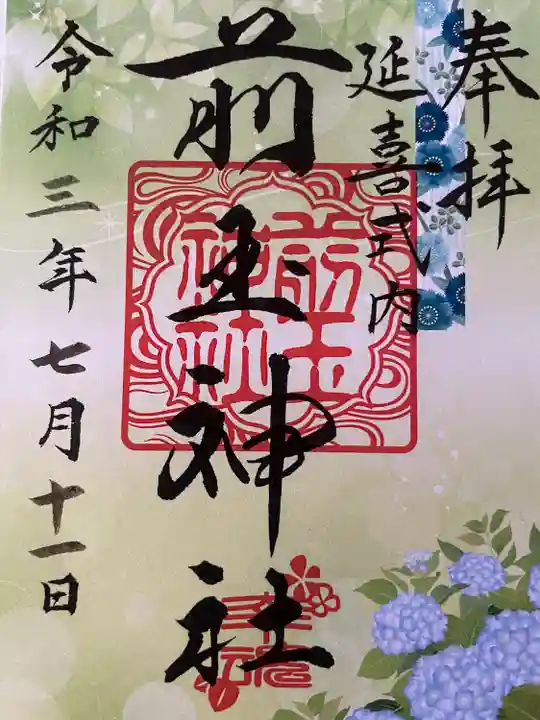 奉拝
延喜式内
前玉神社
前玉
神社
令和三年七月十一日